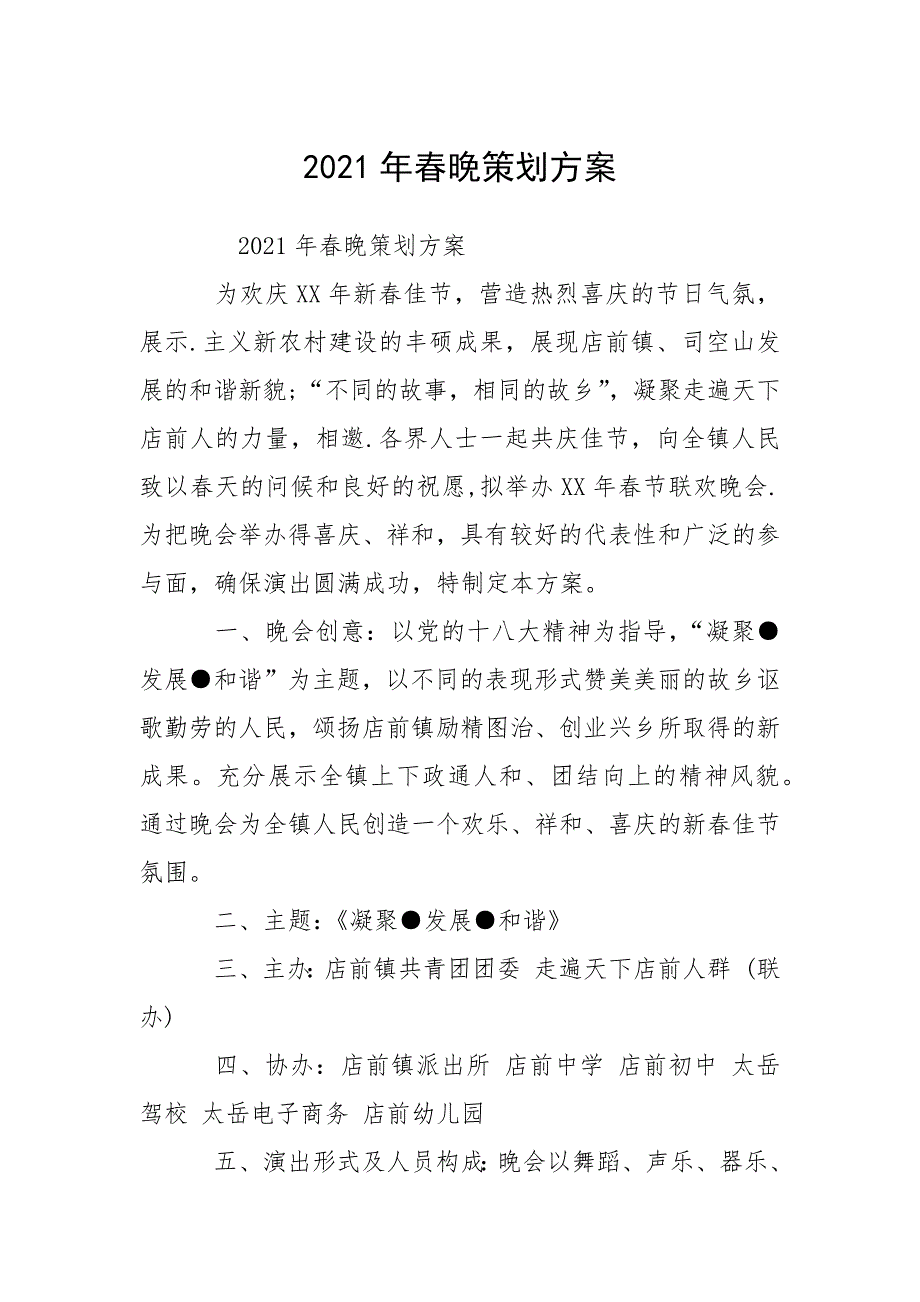 2021 年春晚策划方案
2021 年春晚策划方案
为欢庆 XX 年新春佳节，营造热烈喜庆的节日气氛，
展示.主义新农村建设的丰硕成果，展现店前镇、司空山发
展的和谐新貌;“不同的故事，相同的故乡”，凝聚走遍天下
店前人的力量，相邀.各界人士一起共庆佳节，向全镇人民
致以春天的问候和良好的祝愿,拟举办 XX 年春节联欢晚会.
为把晚会举办得喜庆、祥和，具有较好的代表性和广泛的参
与面，确保演出圆满成功，特制定本方案。
一、晚会创意：以党的十八大精神为指导，“凝聚●
发展●和谐”为主题，以不同的表现形式赞美美丽的故乡讴
歌勤劳的人民，颂扬店前镇励精图治、创业兴乡所取得的新
成果。充分展示全镇上下政通人和、团结向上的精神风貌。
通过晚会为全镇人民创造一个欢乐、祥和、喜庆的新春佳节
氛围。
二、主题：《凝聚●发展●和谐》
三、主办：店前镇共青团团委 走遍天下店前人群 (联
办)
四、协办：店前镇派出所 店前中学 店前初中 太岳
驾校 太岳电子商务 店前幼儿园
五、演出形式及人员构成：晚会以舞蹈、声乐、器乐、